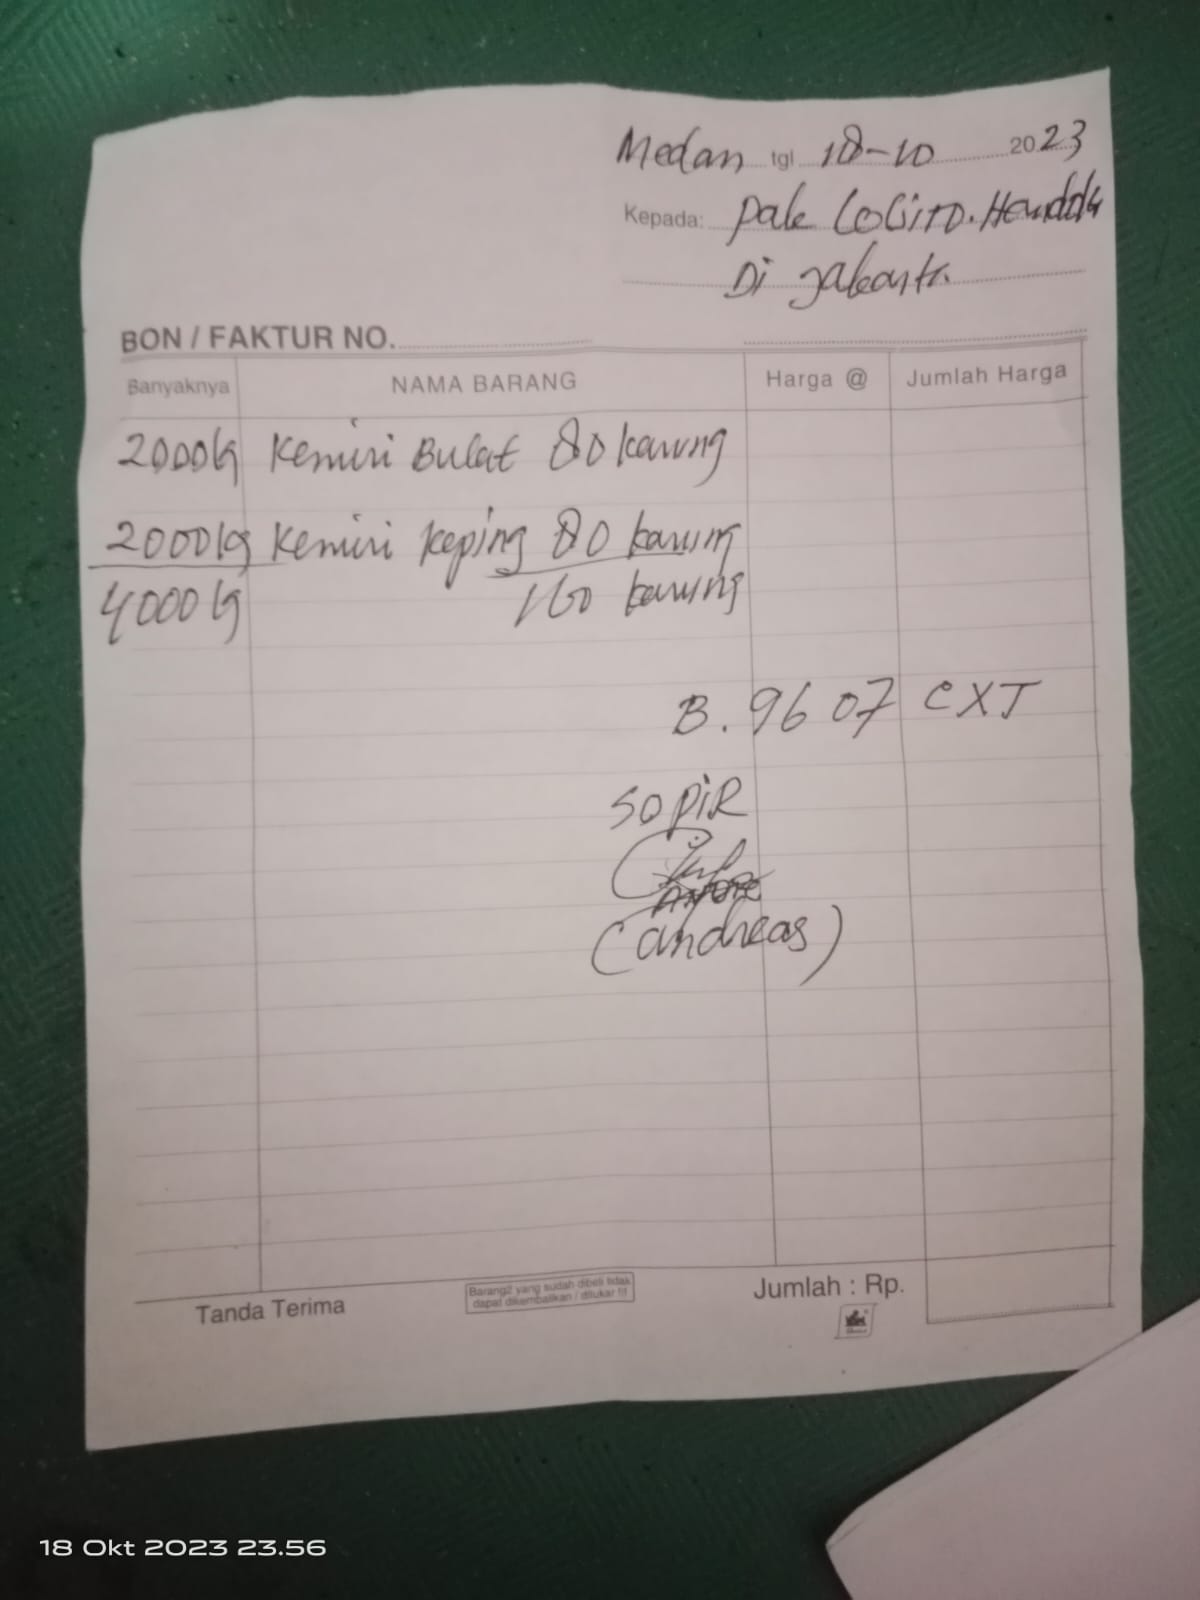 Medan tgl 18-10 2023
Kepada: pak
Di Jakarta
BON / FAKTUR NO.
Banyaknya NAMA BARANG Harga @ Jumlah Harga
2000 kg Kemiri Bulat 80 karung
2000 kg Kemiri keping 80 karung
4000 kg 160 karung
B. 9607 CXT
SOPIR
(andreas)
Tanda Terima
Barang2 yang sudah dibeli tidak
dapat dikembalikan / ditukar !!!
Jumlah : Rp.
18 Okt 2023 23.56